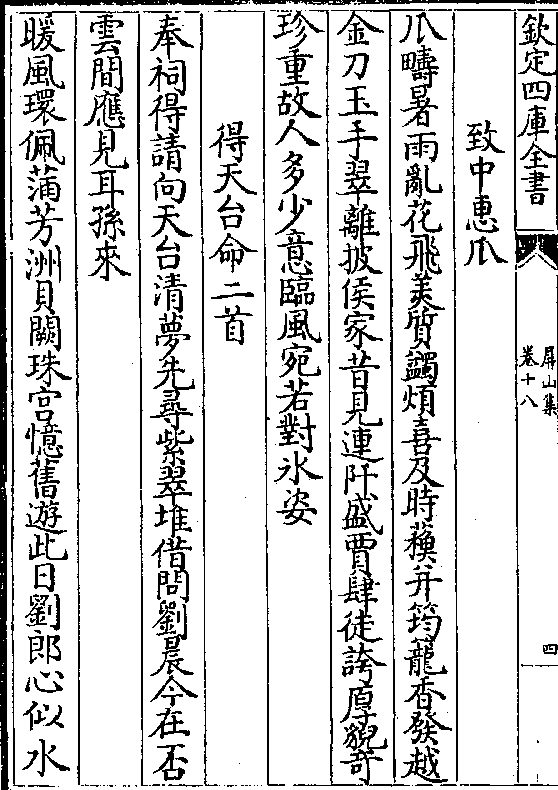 欽定四庫全書
屏山集
卷十八
四
致中惠瓜
瓜疇暑雨亂花飛美質蠲煩喜及時并筠籠香發越
金刀玉手翠離披侯家昔見連阡盛賈肆徒誇厚貌奇
珍重故人多少意臨風宛若對氷姿
得天台命二首
奉祠得請向天台清夢先尋紫翠堆借問劉晨今在否
雲間應見耳孫來
暖風環佩滿芳洲貝闕珠宫憶舊遊此日劉郎心似水